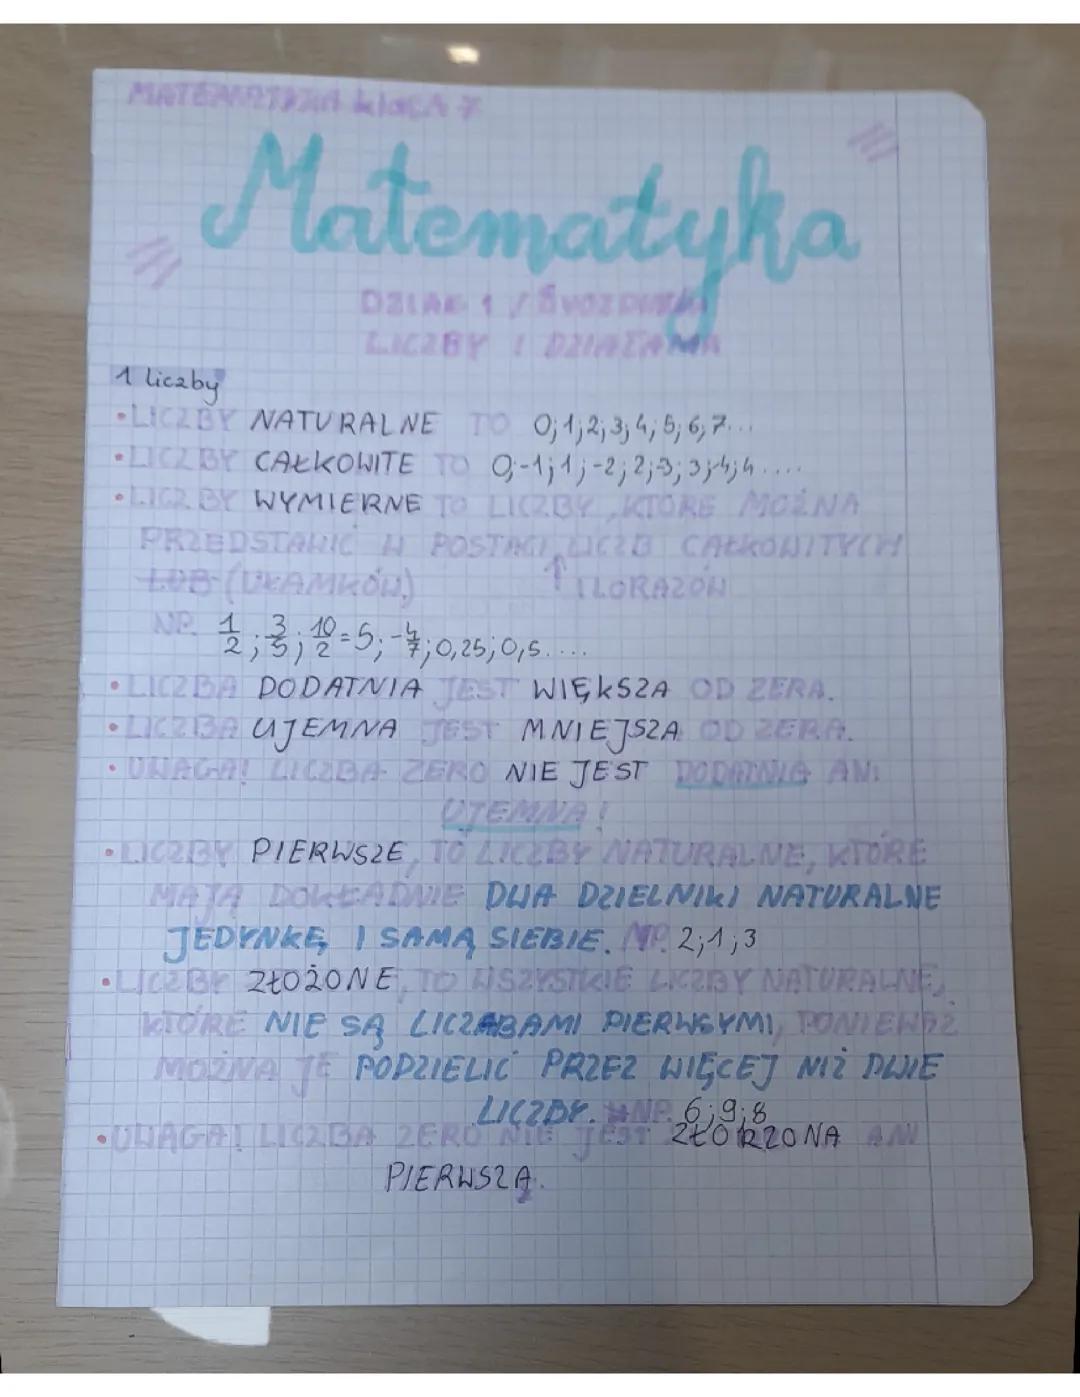 MATEMATYKA klasa 7
Matematyka
DZIAŁ 1 /
LICZBY I DZIAŁANIA
1 liczby
• LICZBY NATURALNE TO 0;1;2;3;4;5;6;7...
• LICZBY CAŁKOWITE TO 0;-1;1;-2;2;-3;3;-4;4....
• LICZBY WYMIERNE TO LICZBY, KTÓRE MOŻNA
PRZEDSTAWIĆ W POSTACI LICZB CAŁKOWITYCH
LUB (UŁAMKÓW) ↑ ILORAZÓW
NP. 1/2; 3/5; 10/2=5; -4/7; 0,25; 0,5....
• LICZBA DODATNIA JEST WIĘKSZA OD ZERA.
• LICZBA UJEMNA JEST MNIEJSZA OD ZERA.
• UWAGA! LICZBA ZERO NIE JEST DODATNIA ANI
UJEMNA!
• LICZBY PIERWSZE, TO LICZBY NATURALNE, KTÓRE
MAJĄ DOKŁADNIE DWA DZIELNIKI NATURALNE
JEDYNKĘ I SAMĄ SIEBIE. NP. 2;1;3
• LICZBY ZŁOŻONE, TO WSZYSTKIE LICZBY NATURALNE,
KTÓRE NIE SĄ LICZABAMI PIERWSYMI, PONIEWAŻ
MOŻNA JE PODZIELIĆ PRZEZ WIĘCEJ NIŻ DWIE
LICZBY. NP. 6;9;8
• UWAGA! LICZBA ZERO NIE JEST ZŁORZONA ANI
PIERWSZĄ.